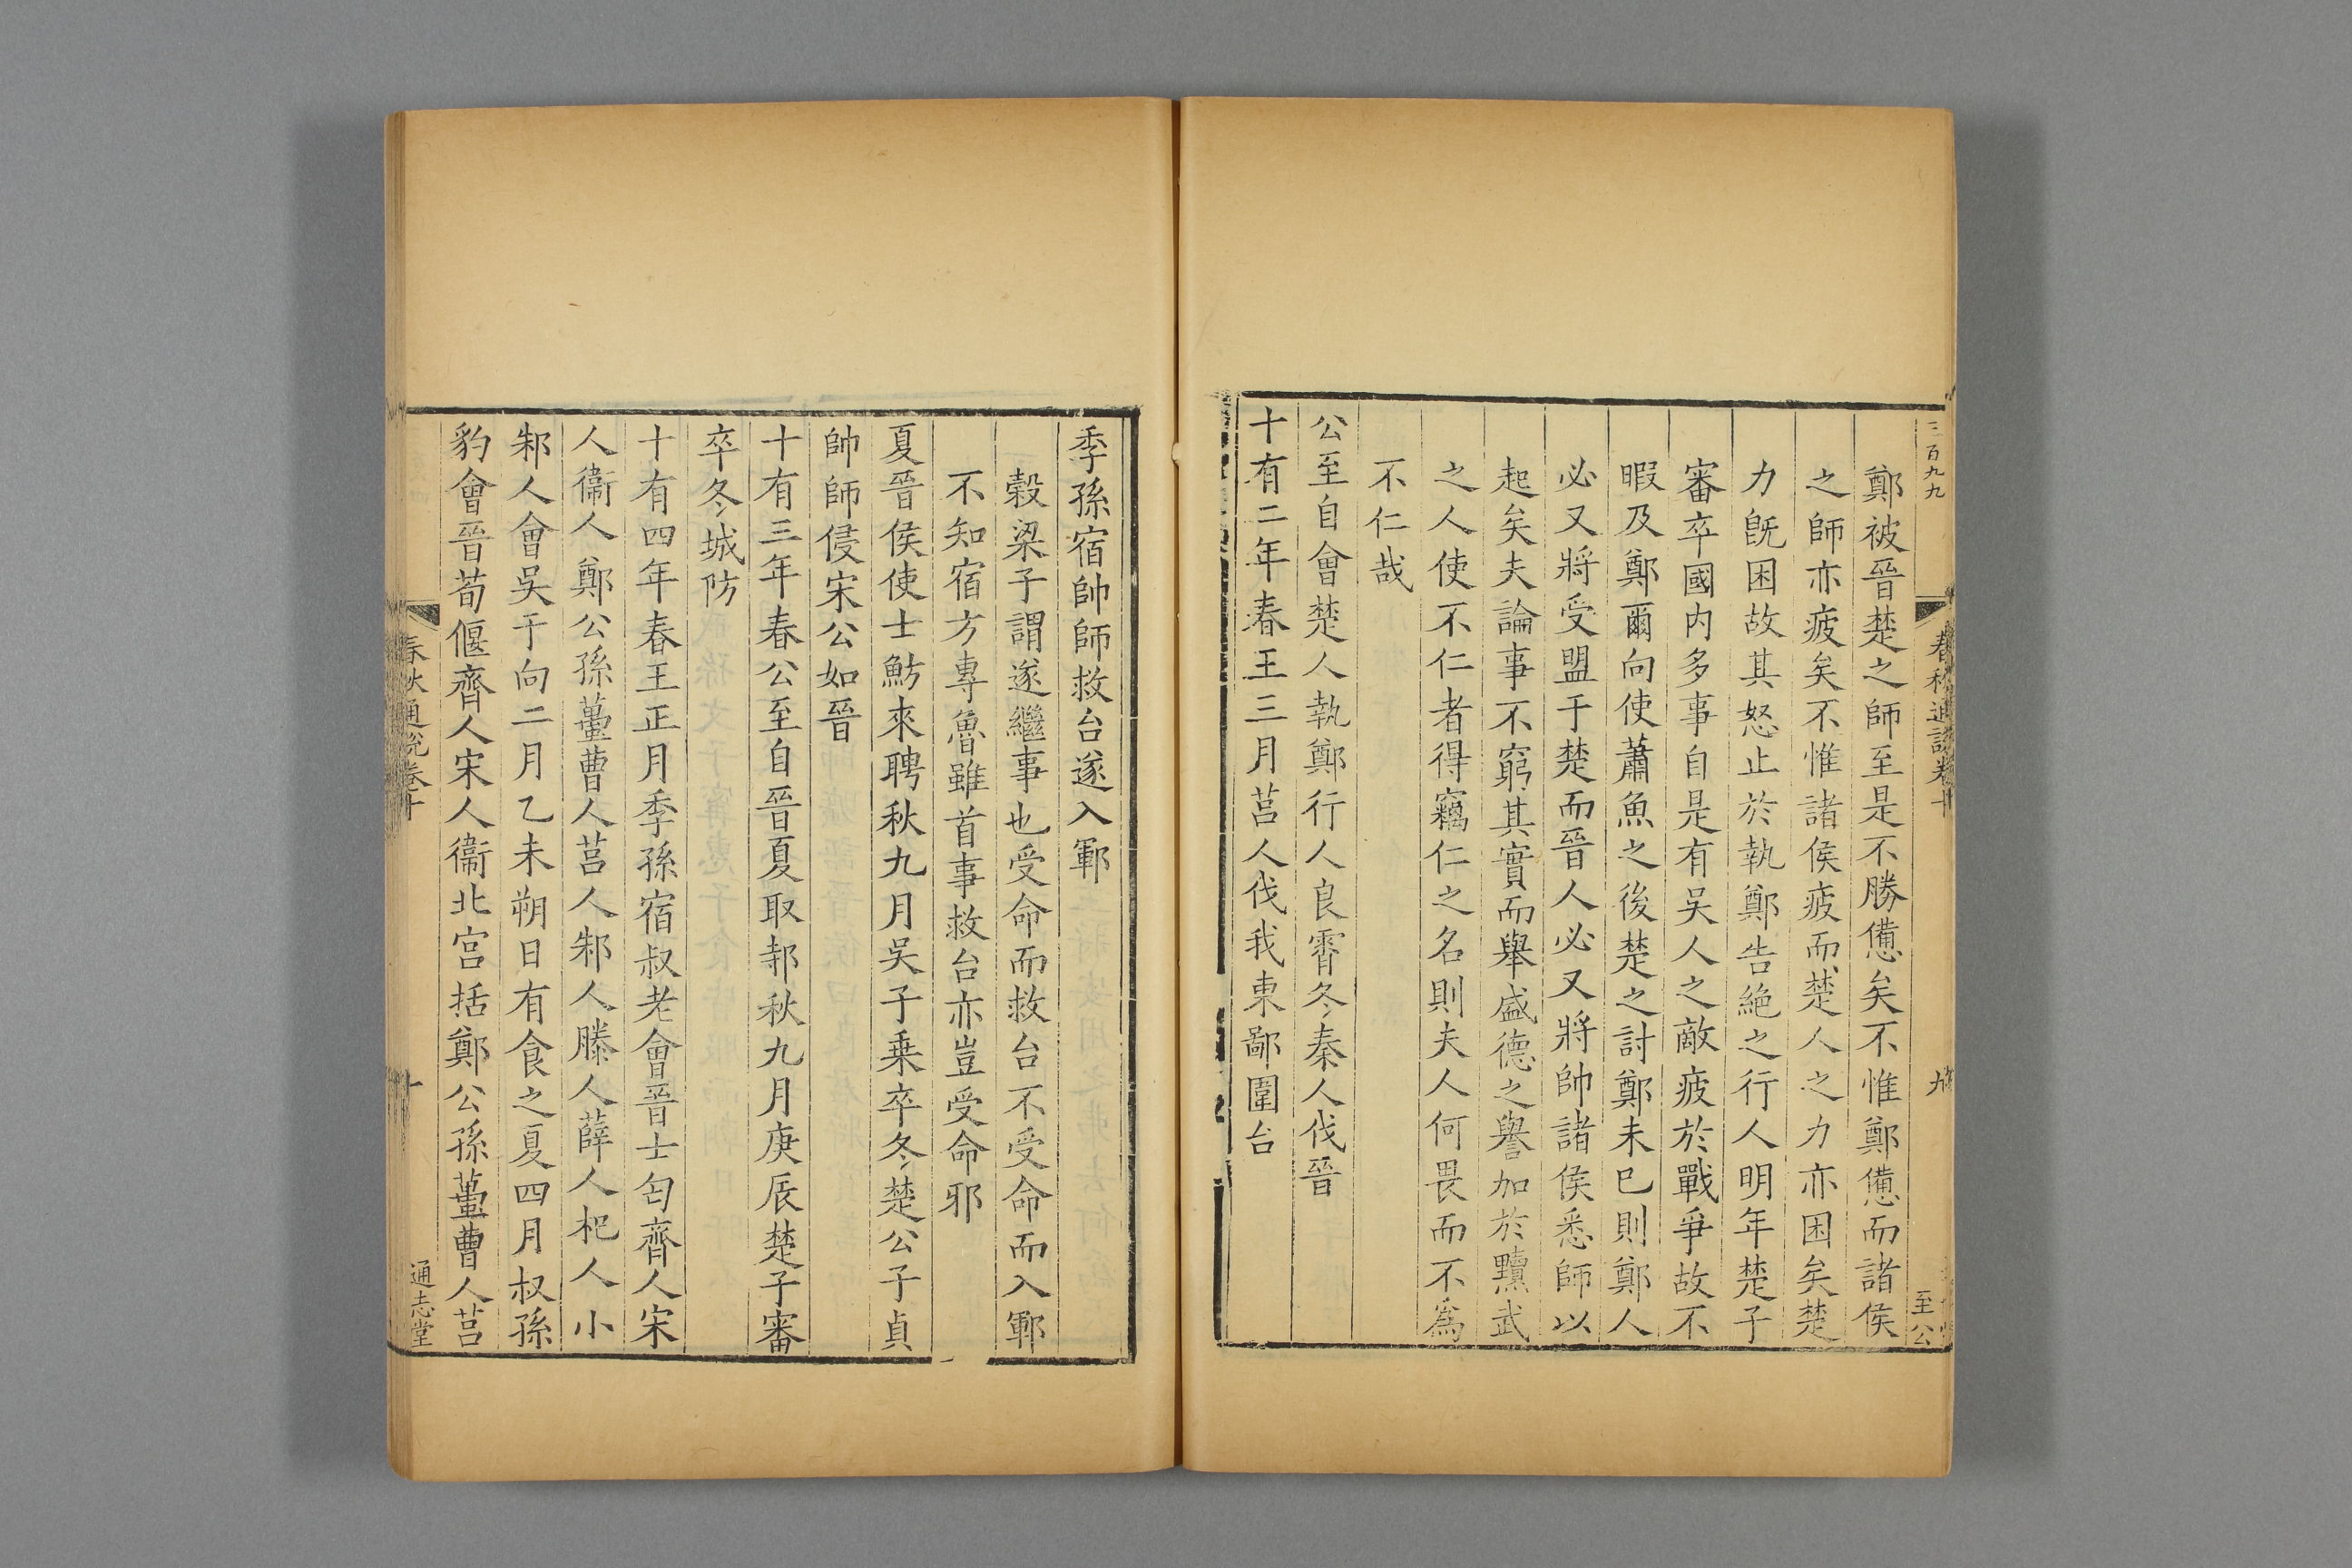 三百九九
春秋通說卷十
九
至公
鄭被晉楚之師至是不勝備矣不惟鄭備而諸侯
之師亦疲矣不惟諸侯疲而楚人之力亦困矣楚
力旣困故其怒止於執鄭告絶之行人明年楚子
審卒國内多事自是有吳人之敵疲於戰爭故不
暇及鄭爾向使蕭魚之後楚之討鄭未已則鄭人
必又將受盟于楚而晉人必又將帥諸侯悉師以
起矣夫論事不窮其實而舉盛德之譽加於黷武
之人使不仁者得竊仁之名則夫人何畏而不為
不仁哉
公至自會楚人執鄭行人良霄冬秦人伐晉
十有二年春王三月莒人伐我東鄙圍台
季孫宿帥師救台遂入鄆
穀梁子謂遂繼事也受命而救台不受命而入鄆
不知宿方專魯雖首事救台亦豈受命邪
夏晉侯使士魴來聘秋九月吳子乗卒冬楚公子貞
帥師侵宋公如晉
十有三年春公至自晉夏取邿秋九月庚辰楚子審
卒冬城防
十有四年春王正月季孫宿叔老會晉士匄齊人宋
人衞人鄭公孫蠆曹人莒人邾人滕人薛人杞人小
邾人會吳于向二月乙未朔日有食之夏四月叔孫
豹會晉荀偃齊人宋人衞北宮括鄭公孫蠆曹人莒
春秋通說卷十
十
通志堂